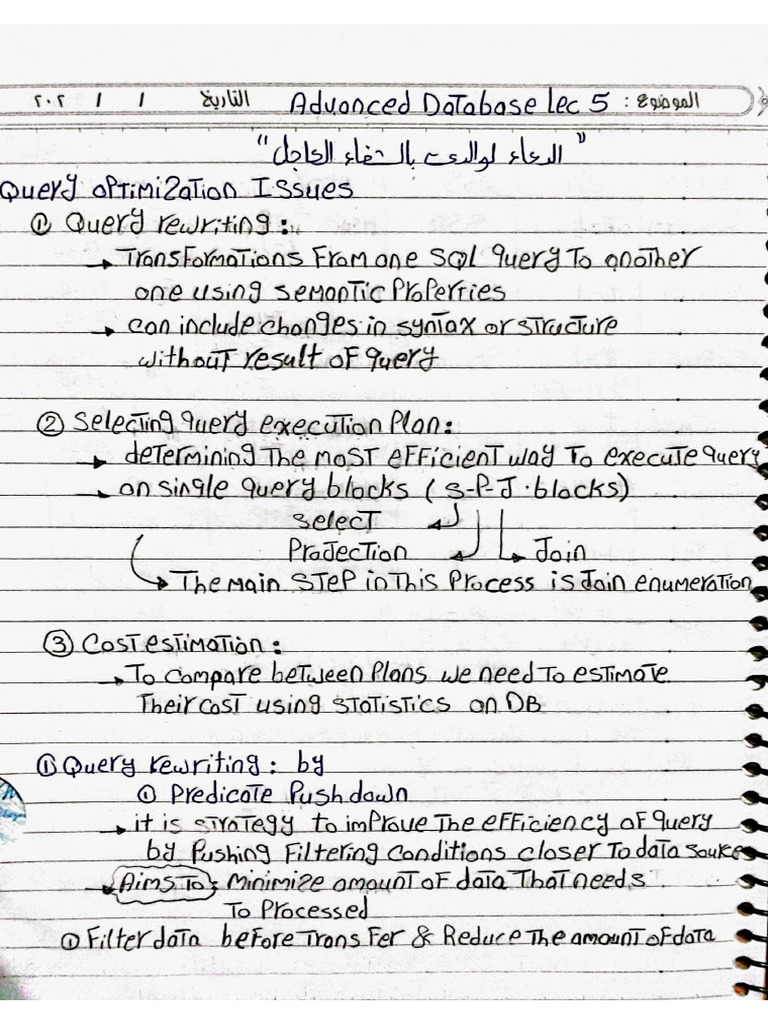 الموضوع : Advanced Database Lec 5 التاريخ / / ٢٠٢
"الدعاء لوالدى بالشفاء العاجل"
Query optimization Issues
① Query rewriting :
→ Transformations From one SQL query To another
one using semantic Properties
→ can include changes in syntax or structure
without result of query
② Selecting query execution Plan :
→ determining The most efficient way To execute query
→ on single query blocks ( S-P-J.blocks)
select
Projection Join
→ The main step in This Process is Join enumeration
③ Cost estimation :
→ To compare between Plans we need To estimate
Their cost using statistics on DB
① Query rewriting : by
① Predicate Push down
→ it is strategy to improve The efficiency of query
by Pushing Filtering Conditions closer To data source
→ Aims To : Minimize amount of data That needs
To Processed
① Filter data before Transfer & Reduce The amount of data